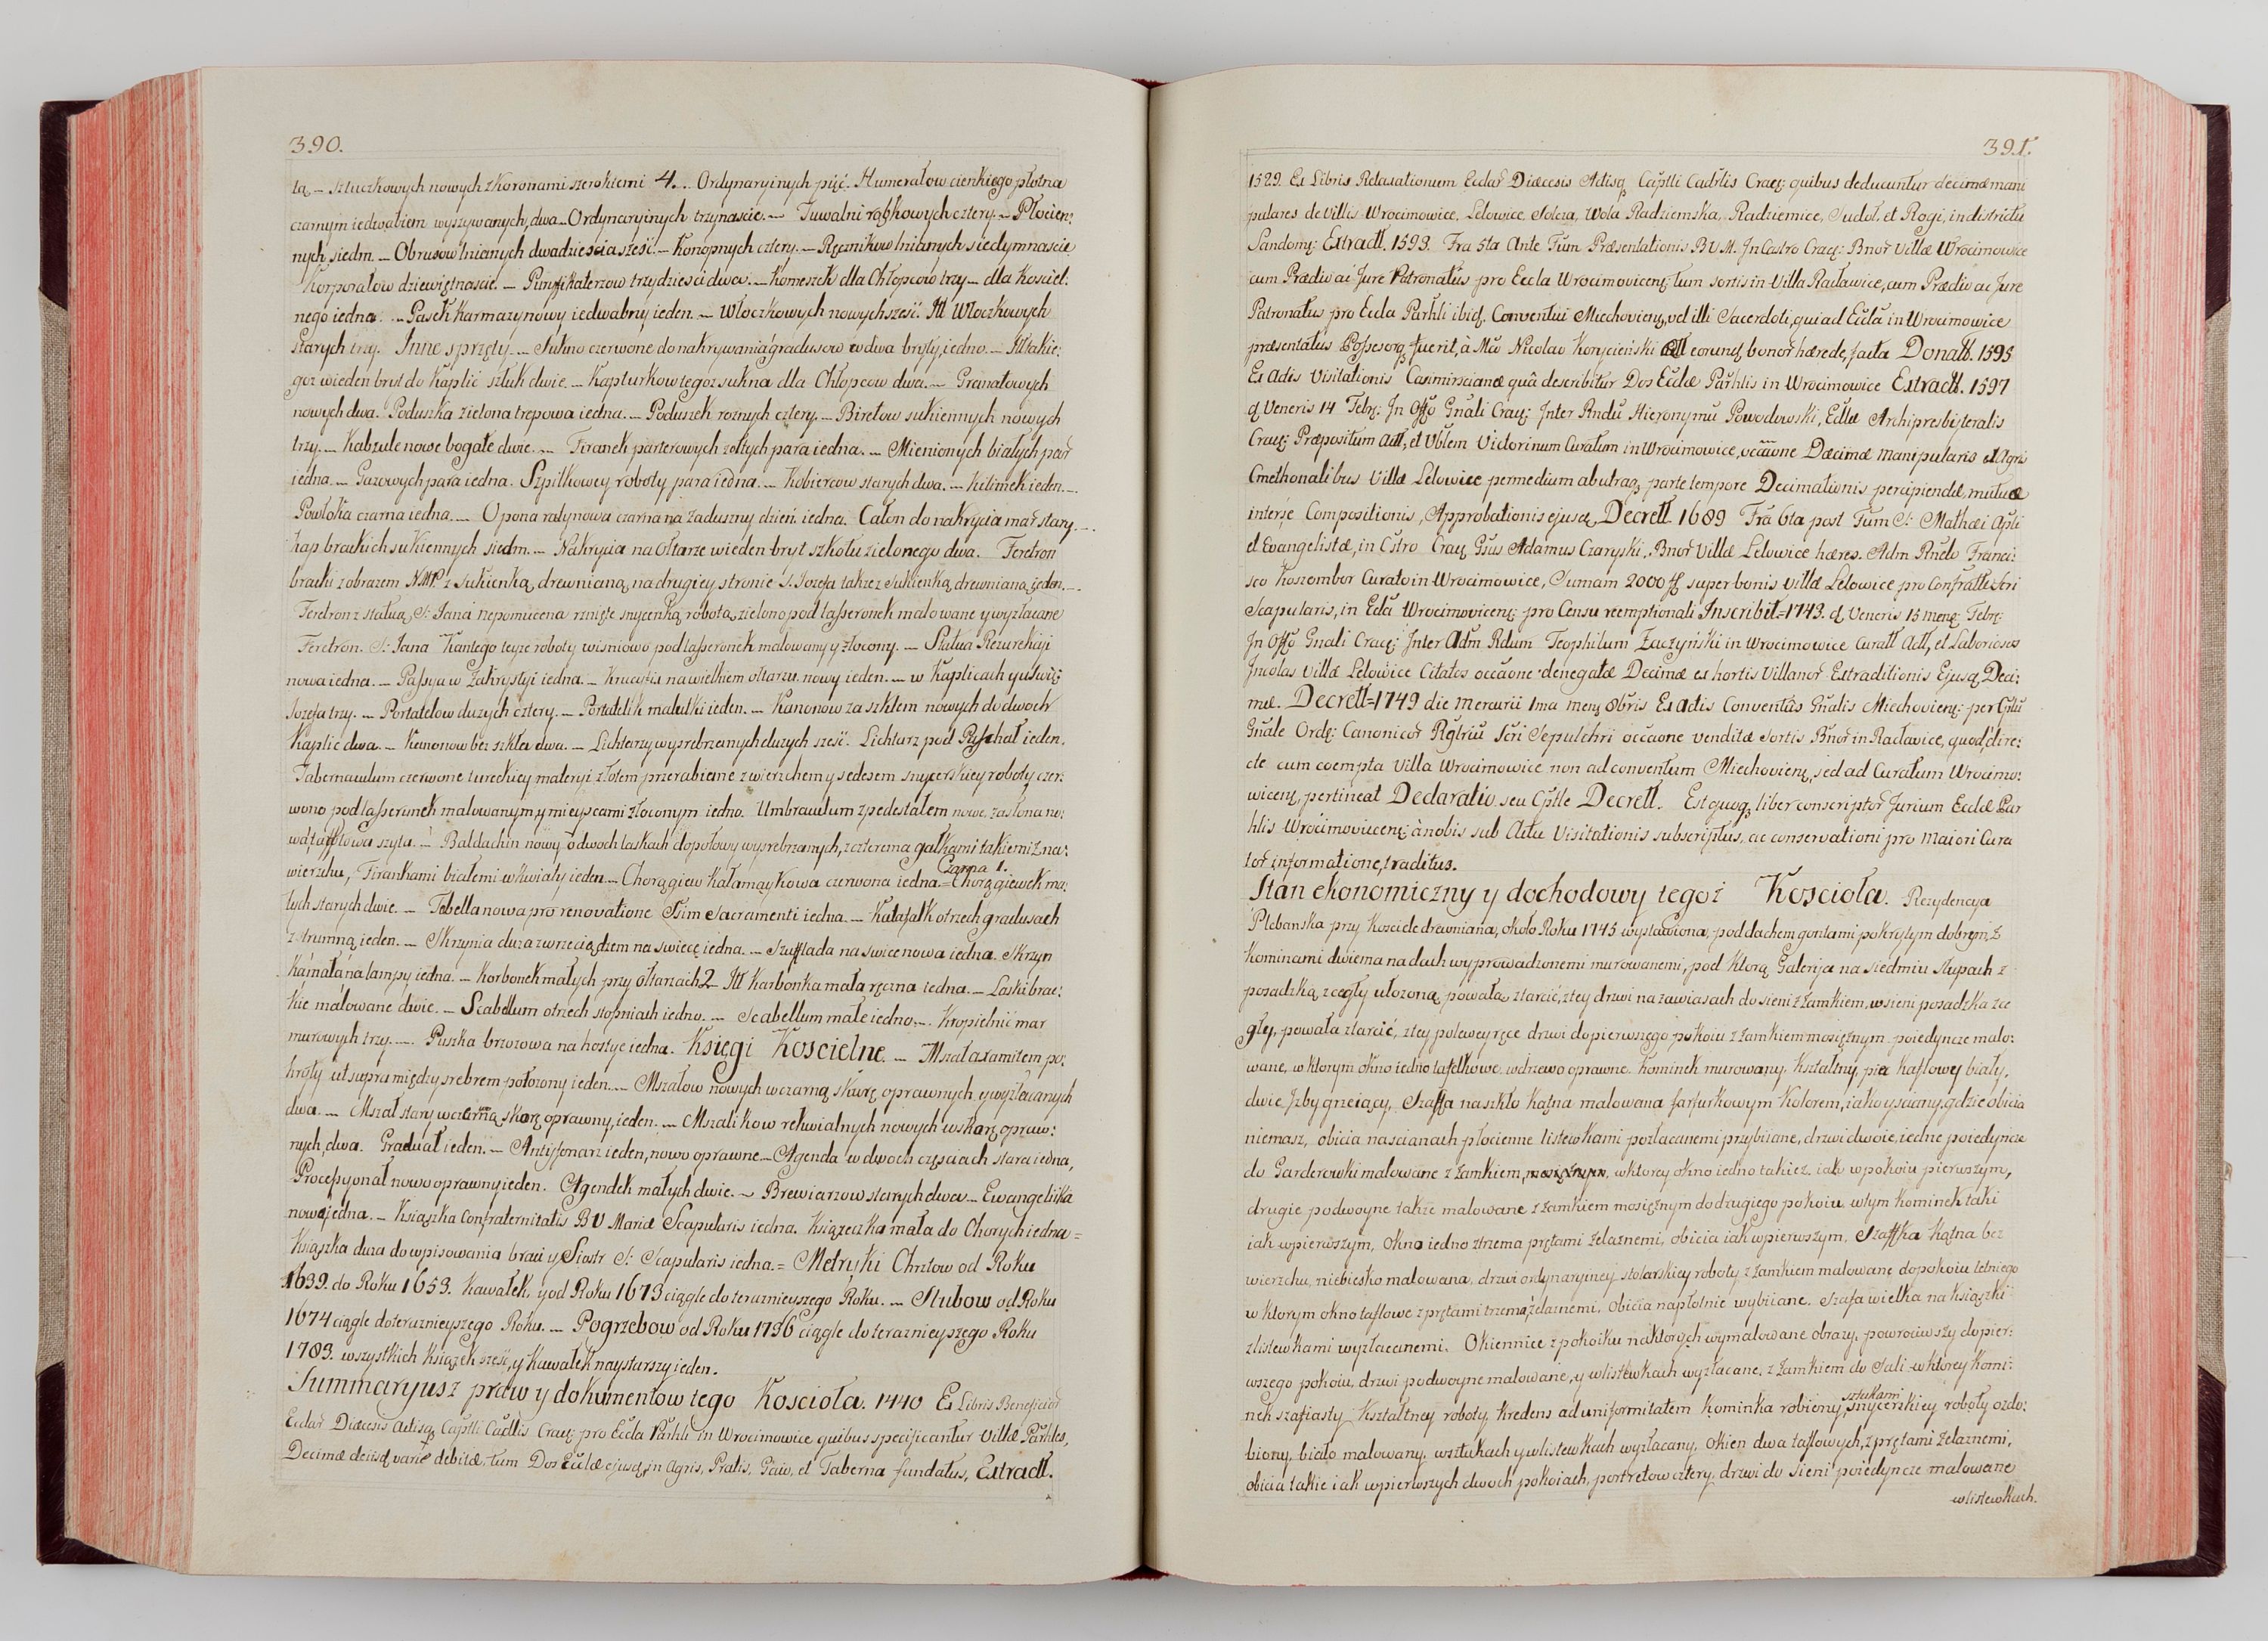 390.
ta, — sztuczkowych nowych z Koronami szerokiemi 4. — Ordynaryinych pięć. Humerałow cienkiego płotna
czarnym iedwabiem wyszywanych, dwa — Ordynaryinych trzynascie. — Tuwalni rąbkowych cztery. — Płocien:
nych siedm. — Obrusow lnianych dwadziescia szesć. — Konopnych cztery. — Ręcznikow lnianych siedymnascie
Korporałow dziewiętnascie. — Puryfikaterzow trzydziesci dwa. — Komeszek dla Chłopcow trzy — dla Kosciel:
nego iedna. — Pasek Karmazynowy iedwabny ieden. — Włoczkowych nowych szesć. It Włoczkowych
starych trzy. Inne sprzęty. — Sukno czerwone do nakrywania gradusow w dwa bryty, iedno. — It takie:
goz w ieden bryt do Kaplic sztuk dwie. — Kapturkow tegoz sukna dla Chłopcow dwa. — Granatowych
nowych dwa. Poduszka zielona trepowa iedna. — Poduszek roznych cztery. — Biretow sukiennych nowych
trzy. — Kabzule nowe bogate dwie. — Firanek parterowych zołtych para iedna. — Mienionych białych par
iedna. — Gazowych para iedna. Szpilkowey roboty para iedna. — Kobiercow starych dwa. — Kilimek ieden. —
Powłoka czarna iedna. — Opona ratynowa czarna na Zaduszny dzień iedna. Całon do nakrycia mar stary. —
Kap brackich sukiennych siedm. — Nakrycia na Ołtarze w ieden bryt szkołu zielonego dwa. Feretron
bracki z obrazem NMP z Sukienką, drewnianą, na drugiey stronie S. Jozefa takze z Sukienką, drewnianą, ieden. —
Feretron z statuą, S: Jana Nepomucena rznięte snycerską robotą, zielono pod laszeronek malowane y wyzłacane
Feretron. S: Jana Kantego teyze roboty wisniowo pod laszeronek malowany y złocony. — Statua Rezurekcji
nowa iedna. — Passya w Zakrystyi iedna. — Krucyfix na wielkiem ołtarzu, nowy ieden. — w Kaplicach y u Swię:
Jozefa trzy. — Portatelow duzych cztery. — Portatelik malutki ieden. — Kanonow za szkłem nowych do dwoch
Kaplic dwa. — Kanonow bez szkła dwa. — Lichtarzy wysrebrzanych duzych szesć. Lichtarz pod Paschał ieden.
Tabernaculum czerwone tureckiey materyi złotem przerabiane z wierzchem y sedesem snycerskiey roboty czer:
wono pod laszerunek malowanym y mieyscami złoconym iedno. Umbraculum z pedestałem nowe, zasłona no:
wa taftowa szyta. — Baldachin nowy o dwoch laskach do połowy wysrebrzanych, z czterema gałkami takiemiz na:
wierzchu, Firankami białemi w Kwiaty ieden. — Chorągiew Kałamaykowa czerwona iedna. = Czarna 1. Chorągiewek ma:
łych starych dwie. — Tabella nowa pro renovatione SSim Sacramenti iedna. — Katafalk o trzech gradusach
z trumną, ieden. — Skrzynia duza z wrzeciądzem na swiece iedna. — Szuflada na swice nowa iedna. Skrzyn
ka mała na lampy iedna. — Karbonek małych przy Ołtarzach 2 — It Karbonka mała ręczna iedna. — Laski brac:
kie malowane dwie. — Scabellum o trzech stopniach iedno. — Scabellum małe iedno. — Kropielnic mar
murowych trzy. — Puszka brzozowa na hostye iedna. Księgi Koscielne. — Mszał axamitem po:
kryty ut supra między srebrem połozony ieden. — Mszałow nowych w czarną skurę oprawnych, y wyzłacanych
dwa. — Mszał stary w czarną skorę oprawny, ieden. — Mszalikow rekwialnych nowych w skorę opraw:
nych, dwa. Graduał ieden. — Antyfonarz ieden, nowo oprawne. — Agenda w dwoch częsciach stara iedna,
Processyonał nowo oprawny ieden. Agendek małych dwie. — Brewiarzow starych dwa. — Ewangeliczka
nowa iedna. — Ksiązka Confraternitatis BV Mariæ Scapularis iedna. Ksiązeczka mała do Chorych iedna =
Ksiązka duza do wpisowania braci y Siostr S: Scapularis iedna. = Metryki Chrztow od Roku
1639. do Roku 1653. Kawałek, y od Roku 1673 ciągle do teraznieyszego Roku. — Slubow od Roku
1674 ciągle do teraznieyszego Roku. — Pogrzebow od Roku 1736 ciągle do teraznieyszego Roku
1783. wszystkich Ksiązek szesć, y Kawałek naystarszy ieden.
Summaryusz praw y dokumentow tego Kosciola. 1440 Ex Libris Beneficior
Ecclar Diæcesis Actisq Captli Cadlis Crac: pro Eccla Parhli in Wrocimowice quibus specificantur Villæ Parhles,
Decimæ deiisd variè debitæ, tum Dos Ecclæ ejusd, in Agris, Pratis, et Taberna fundatus, Extractt.
391.
1529. Ex Libris Relaxationum Ecclar Diæcesis Actisq Captli Cadrlis Crac: quibus deducuntur decimæ mani
pulares de Villis Wrocimowice, Lelowice, Solcza, Wola Radziemska, Radziemice, Sudoł, et Rogi, in districtu
Sandomę: Extractt. 1593. Fra 5ta Ante Fum Præsentationis BVM. In Castro Crac: Bnor Villæ Wrocimowice
cum Prædio ac Jure Patronatûs pro Eccla Wrocimovicenę: tum sortis in Villa Racławice, cum Prædio ac Jure
Patronatus pro Eccla Parhli ibiq. Conventui Miechovieny, vel illi Sacerdoti, qui ad Ecclã in Wrocimowice
præsentatus Possesorq fuerit, à Mco Nicolao Korycieński eorund bonor hærede, facta Donatt. 1595
Ex Actis Visitationis Casimirscianæ quâ describitur Dos Ecclæ Parhlis in Wrocimowice Extractt. 1597
d Veneris 14 Febr: In Offo Gnali Crac: Inter Rndũ Hieronymũ Powodowski, Ecllæ Archipresbiteralis
Crac: Præpositum Actt, et Vblem Victorinum Curatum in Wrocimowice, occãone Dæcimæ manipularis et Agris
Cmethonalibus Villæ Lelowice per medium ab utraq parte tempore Decimationis percipiendæ, mutuæ
interse Compositionis, Approbationis ejusq, Decrett. 1689 Fra 6ta post Fum S: Mathæi Apli
et Evangelistæ, in Cstro Crac Gsus Adamus Czaryski, Bnor Villæ Lelowice hæres. Adm Rndo Franci:
sco Koszembor Curato in Wrocimowice, Sumam 2000 ff super bonis Villæ Lelowice pro Confratte Scri
Scapularis, in Eccla Wrocimovicenę: pro Censu reemptionali Inscribit = 1743. d Veneris 15 menę: Febr:
In Offo Gnali Crac: Inter Adm Rdum Teophilum Zaczyński in Wrocimowice Curatt Actt, et Laboriosos
Incolas Villæ Lelowice Citatos occãone denegatæ Decimæ ex hortis Villanor Extraditionis Ejusq, Deci:
mæ. Decrett = 1749 die Mercurii 1ma menę 8bris Ex Actis Conventûs Gnalis Miechovieny: per Cptũ
Gnãle Ordę: Canonicor Rglriũ Scri Sepulchri occãone venditæ sortis Bnor in Racławice, quod dire:
cte cum coempta Villa Wrocimowice non ad conventum Miechovieny, sed ad Curatum Wrocimo:
wicenę, pertineat Declaratio seu Cptle Decrett. Est quoq, liber conscriptor Jurium Ecclæ Par
hlis Wrocimovicenę: à nobis sub Actu Visitationis subscriptus, ac conservationi pro maiori Cura
tor informatione, traditus.
Stan ekonomiczny y dochodowy tegoż Kosciola. Rezydencya
Plebanska przy Kosciele drewniana, około Roku 1745 wystawiona, pod dachem gontami pokrytym dobrym, z
kominami dwiema na dach wyprowadzonemi murowanemi, pod ktorą Galerya na siedmiu słupach z
posadzką z cegły ułozoną, powała z tarcic, z tey drzwi na zawiasach do sieni z zamkiem, w sieni posadzka z ce
gły, powała z tarcic, z tey po lewey ręce drzwi do pierwszego pokoiu z zamkiem mosięznym poiedyncze malo:
wane, w ktorym okno iedno tafelkowe, w drzewo oprawne. Kominek murowany, Kształtny, piec Kaflowy biały,
dwie Izby grzeiący, Szaffa na szkło Kątna malowana farfurkowym Kolorem, iako y sciany, gdzie obicia
niemasz, obicia na scianach płocienne listewkami pozłacanemi przybijane, drzwi dwoie, iedne poiedyncze
do Garderowki malowane z zamkiem, mosięznym, w ktorey okno iedno takiez iak w pokoiu pierwszym,
drugie podwoyne takze malowane z zamkiem mosięznym do drugiego pokoiu w tym Kominek taki
iak w pierwszym, okno iedno z trzema prętami zelaznemi, obicia iak w pierwszym, Szaffka Kątna bez
wierzchu, niebiesko malowana, drzwi ordynaryiney stolarskiey roboty z zamkiem malowane do pokoiu letniego
w ktorym okno taflowe z prętami trzema zelaznemi, Obicia na płotnie wybijane. Szafa wielka na Ksiązki
z listewkami wyzłacanemi. Okiennice z pokoiku na ktorych wymalowane obrazy, powrociwszy do pier:
wszego pokoiu, drzwi podwoyne malowane, y w listewkach wyzłacane, z zamkiem do Sali w ktorey Komi:
nek szafiasty Kształtney roboty, Kredens ad uniformitatem Kominka robiony, sztukami snycerskiey roboty ozdo:
biony, biało malowany, w sztukach y w listewkach wyzłacany, Okien dwa taflowych, z prętami zelaznemi,
obicia takie iak w pierwszych dwoch pokoiach, portretow cztery, drzwi do sieni poiedyncze malowane
w listewkach.